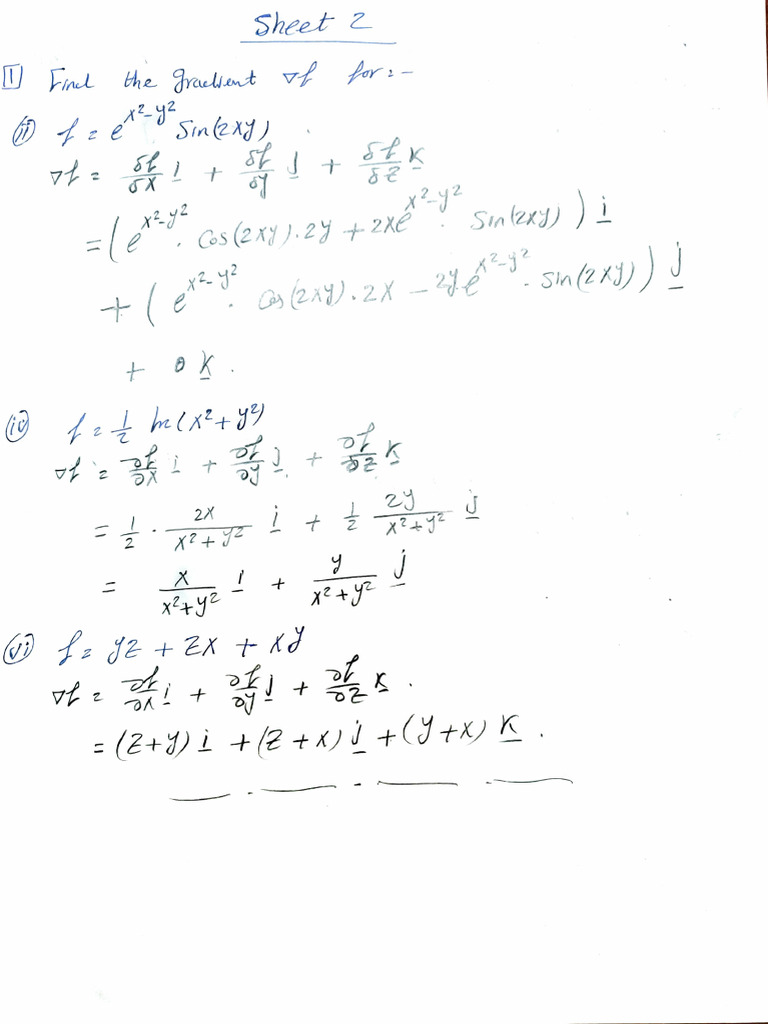 Sheet 2
1 Find the gradient ∇f for:-
ii f = e^{x²-y²} Sin(2xy)
∇f = δf/δx i + δf/δy j + δf/δz k
= (e^{x²-y²} · Cos(2xy).2y + 2xe^{x²-y²} · Sin(2xy)) i
+ (e^{x²-y²} · Cos(2xy).2x - 2ye^{x²-y²} · Sin(2xy)) j
+ 0 k.
iv f = 1/2 ln(x²+y²)
∇f = ∂f/∂x i + ∂f/∂y j + ∂f/∂z k
= 1/2 · 2x/(x²+y²) i + 1/2 2y/(x²+y²) j
= x/(x²+y²) i + y/(x²+y²) j
vi f = yz + zx + xy
∇f = ∂f/∂x i + ∂f/∂y j + ∂f/∂z k.
= (z+y) i + (z+x) j + (y+x) k.